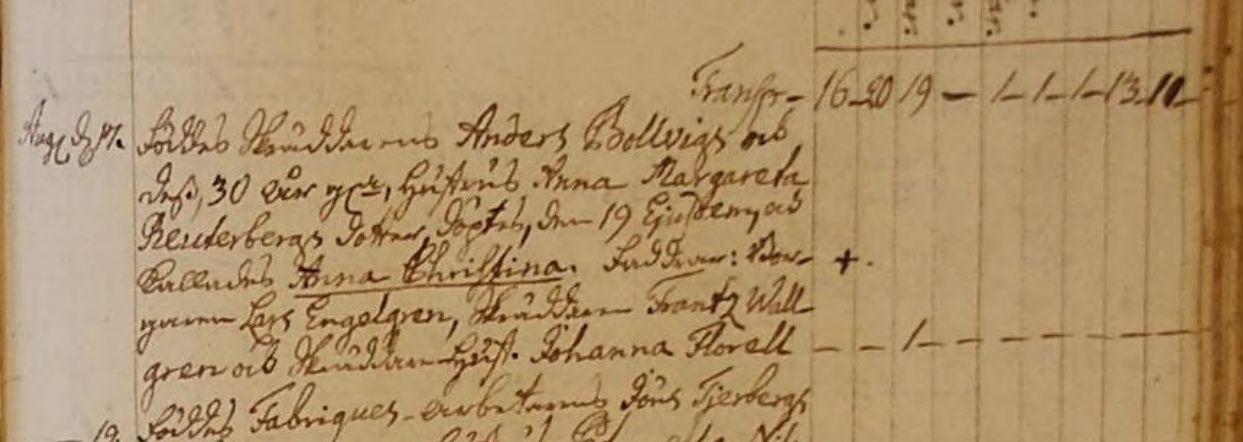 Transp – 16 20 19 – 1 – 1 – 1 – 13 11 –
Aug. d. 17. Föddes Skräddarens Anders Bollvigs och
dess, 30 åhr g, Hustrus Anna Margareta
Reuterbergs dotter, döptes, den 19 Ejusdem, och
kallades Anna Christina. Faddrar: Bor- +.
garen Lars Engelgren, Skräddaren Frantz Wall
gren och Skräddaren Hust. Johanna Florell – – 1 – – – – – –
19. Föddes Fabriques-arbetarens Jöns Tjerbergs